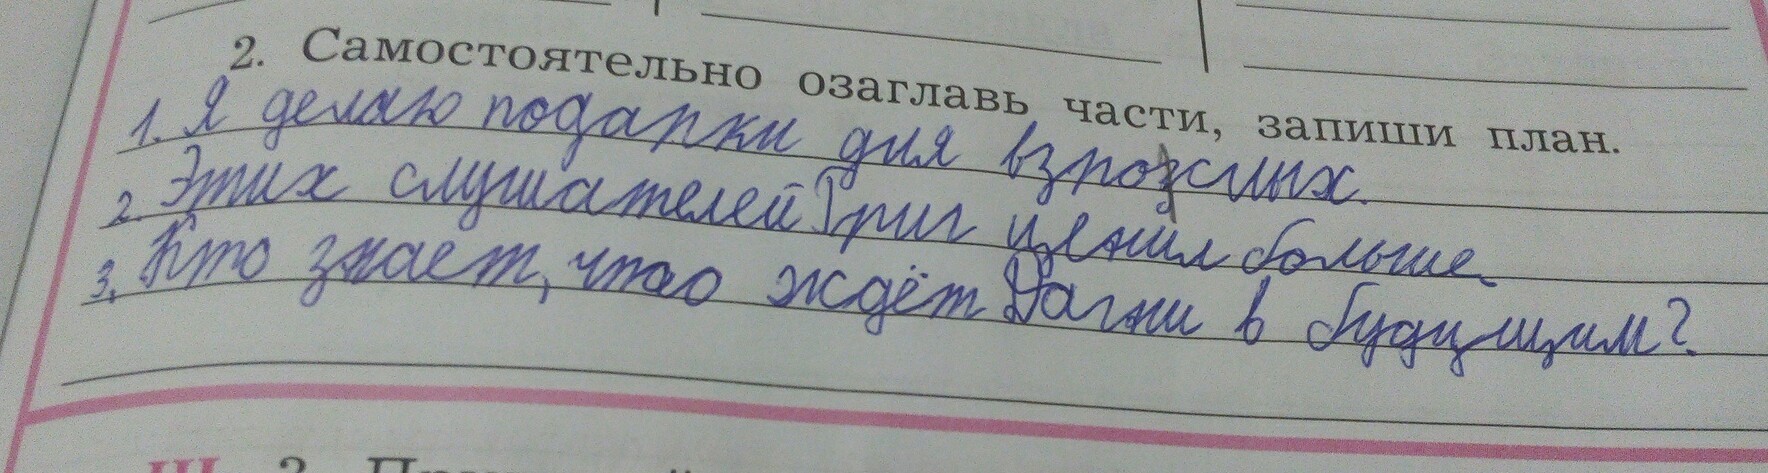 2. Самостоятельно озаглавь части, запиши план.
1. Я делаю подарки для взрослых.
2. Этих слушателей Григ ценил больше
3. Кто знает, что ждёт Дагни в будущим?